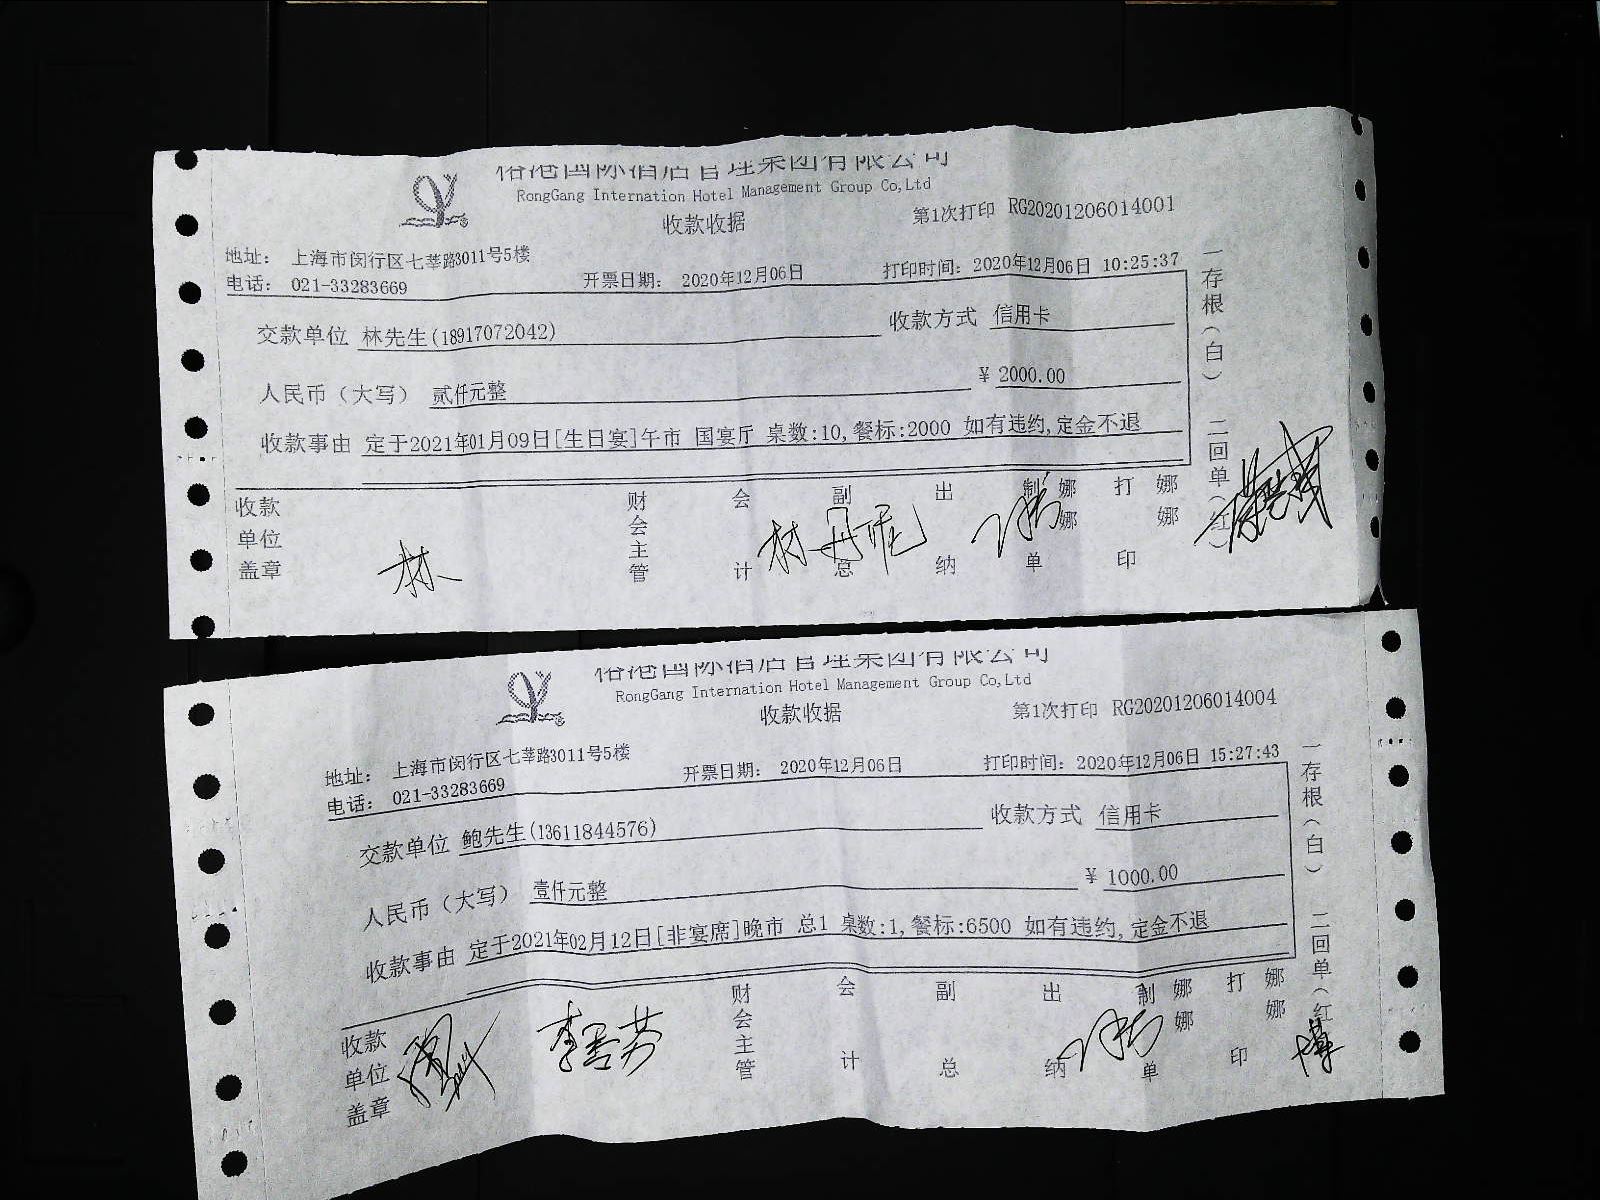 裕港国际酒店管理集团有限公司
RongGang Internation Hotel Management Group Co,Ltd
收款收据
第1次打印 RG20201206014001
地址： 上海市闵行区七莘路3011号5楼
电话： 021-33283669 开票日期： 2020年12月06日 打印时间：2020年12月06日 10:25:37
交款单位 林先生(18917072042) 收款方式 信用卡
人民币（大写） 贰仟元整 ￥ 2000.00
收款事由 定于2021年01月09日[生日宴]午市 国宴厅 桌数:10,餐标:2000 如有违约,定金不退
收款单位盖章 林 财会主管 会计 林丹妮 副总 出纳 制单 娜娜 打印 娜娜
一存根（白） 二回单（红）
裕港国际酒店管理集团有限公司
RongGang Internation Hotel Management Group Co,Ltd
收款收据
第1次打印 RG20201206014004
地址： 上海市闵行区七莘路3011号5楼
电话： 021-33283669 开票日期： 2020年12月06日 打印时间：2020年12月06日 15:27:43
交款单位 鲍先生(13611844576) 收款方式 信用卡
人民币（大写） 壹仟元整 ￥ 1000.00
收款事由 定于2021年02月12日[非宴席]晚市 总1 桌数:1,餐标:6500 如有违约,定金不退
收款单位盖章 李善芬 财会主管 会计 副总 出纳 制单 娜娜 打印 娜娜
一存根（白） 二回单（红